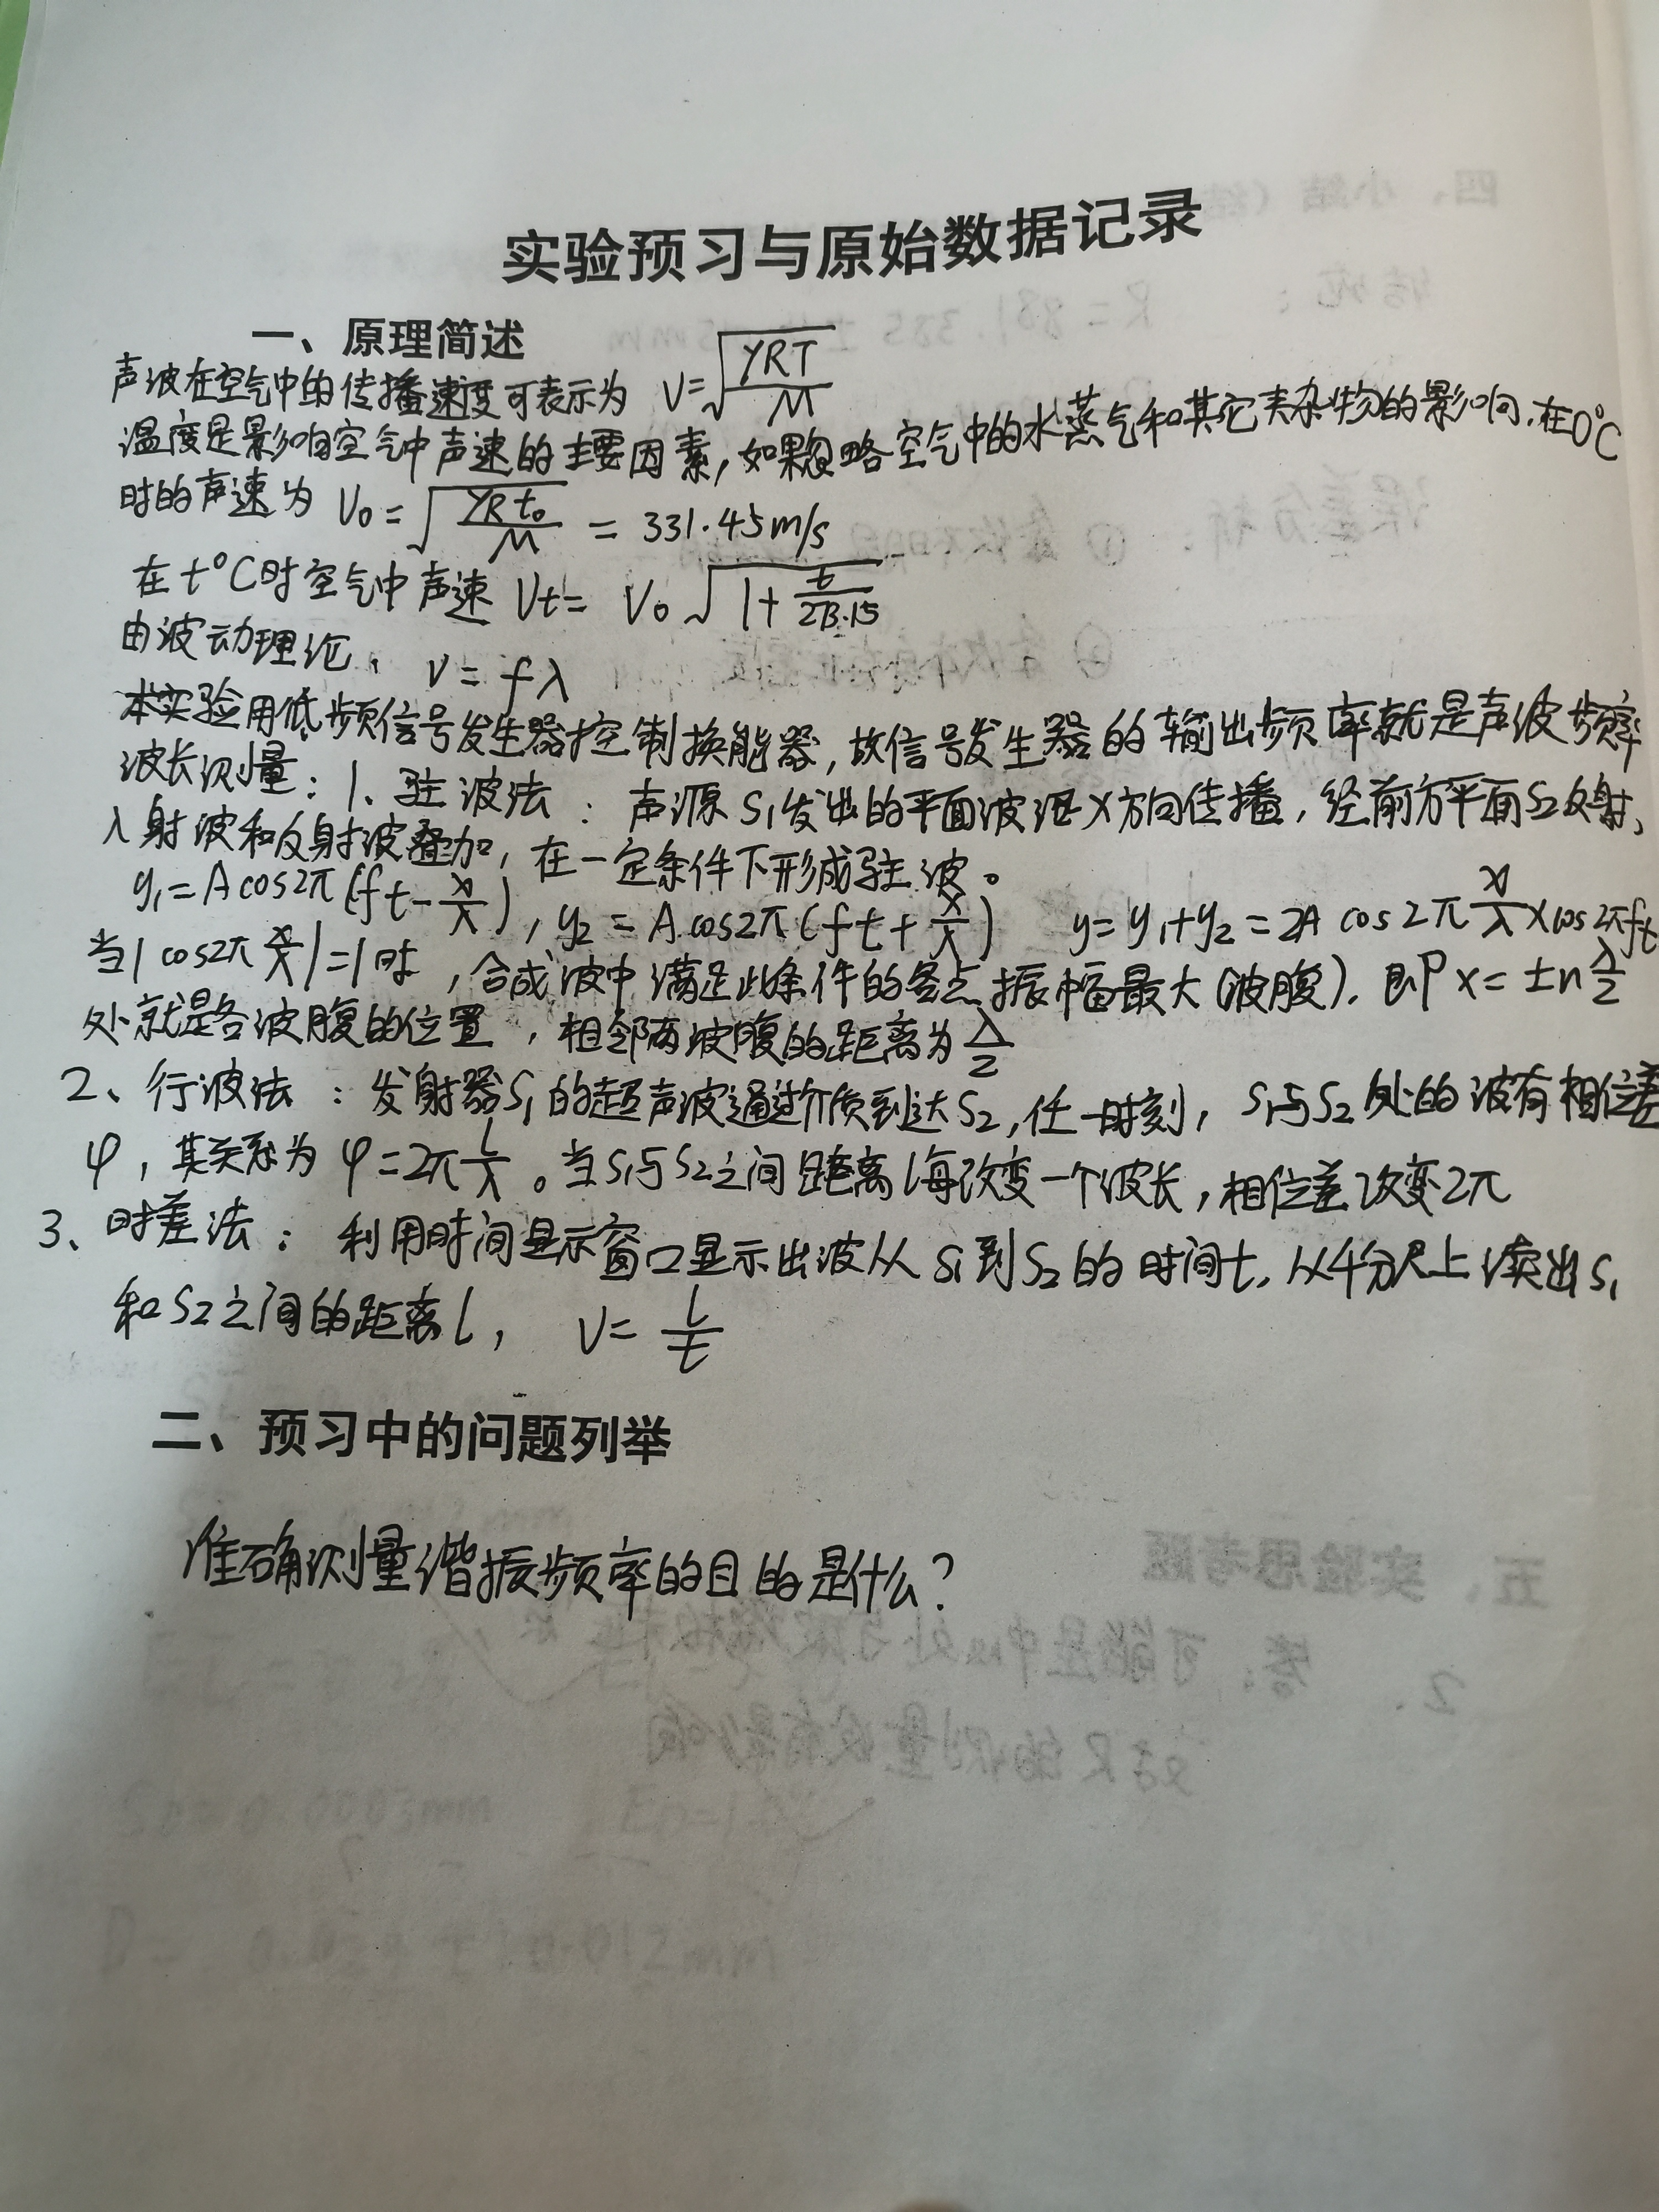 实验预习与原始数据记录
一、原理简述
声波在空气中的传播速度可表示为 V=√(γRT/M)
温度是影响空气中声速的主要因素,如果忽略空气中的水蒸气和其它夹杂物的影响.在0°C
时的声速为 V₀=√(γRt₀/M) = 331.45m/s
在t°C时空气中声速 Vt= V₀√(1+t/273.15)
由波动理论, v= fλ
本实验用低频信号发生器控制换能器,故信号发生器的输出频率就是声波频率
波长测量:1、驻波法:声源S₁发出的平面波沿X方向传播,经前方平面S₂反射,
入射波和反射波叠加,在一定条件下形成驻波。
y₁=Acos2π(ft-x/λ),y₂=Acos2π(ft+x/λ) y=y₁+y₂=2A cos2π x/λ×cos2πft
当|cos2π x/λ|=1时,合成波中满足此条件的各点振幅最大(波腹).即x=±nλ/2
处就是各波腹的位置,相邻两波腹的距离为λ/2
2、行波法:发射器S₁的超声波通过介质到达S₂,任一时刻,S₁与S₂处的波有相位差
φ,其关系为φ=2π l/λ。当S₁与S₂之间距离l每改变一个波长,相位差改变2π
3、时差法:利用时间显示窗口显示出波从S₁到S₂的时间t.从千分尺上读出S₁
和S₂之间的距离l, V= l/t
二、预习中的问题列举
准确测量谐振频率的目的是什么?